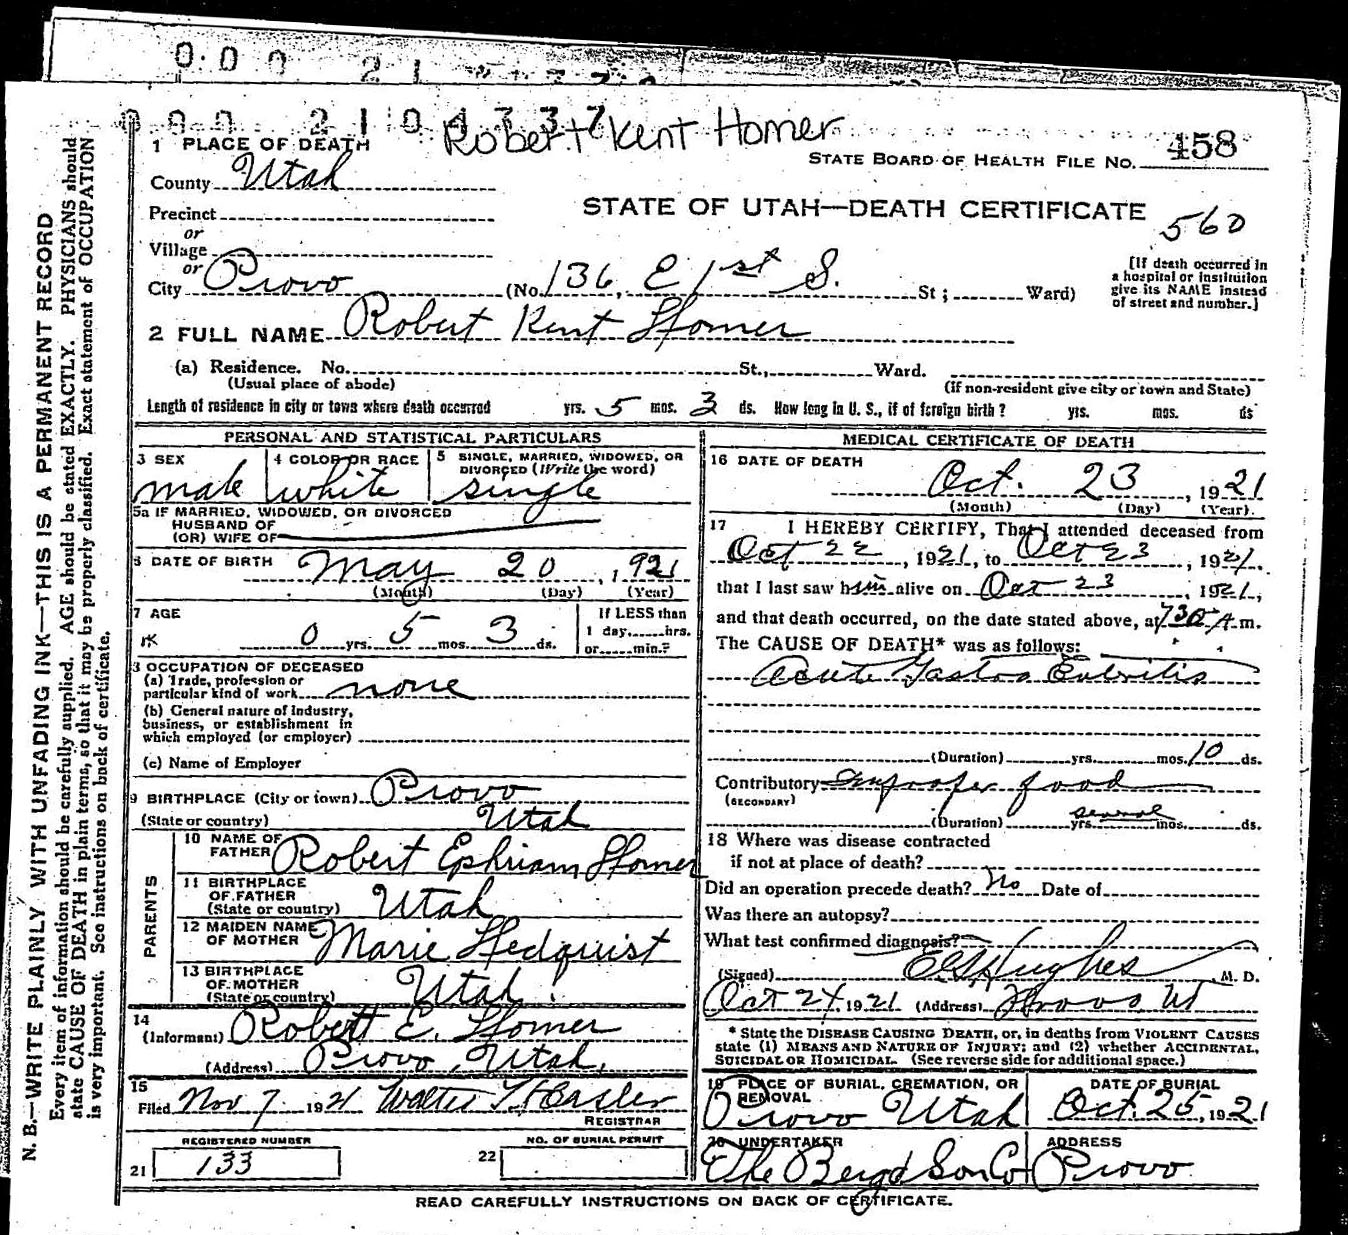 000 2104337
Robert Kent Homer
1 PLACE OF DEATH
STATE BOARD OF HEALTH FILE NO. 458
County Utah
STATE OF UTAH—DEATH CERTIFICATE 560
Precinct
or
Village
or
City Provo (No. 136, E 1st S. St; Ward)
[If death occurred in
a hospital or institution
give its NAME instead
of street and number.]
2 FULL NAME Robert Kent Homer
(a) Residence. No. St., Ward.
(Usual place of abode) (If non-resident give city or town and State)
Length of residence in city or town where death occurred yrs. 5 mos. 3 ds. How long in U. S., if of foreign birth? yrs. mos. ds
PERSONAL AND STATISTICAL PARTICULARS
3 SEX 4 COLOR OR RACE 5 SINGLE, MARRIED, WIDOWED, OR
DIVORCED (Write the word)
male white single
5a IF MARRIED, WIDOWED, OR DIVORCED
HUSBAND OF
(OR) WIFE OF
6 DATE OF BIRTH May 20, 1921
(Month) (Day) (Year)
7 AGE If LESS than
0 yrs. 5 mos. 3 ds. 1 day, hrs.
or min.?
8 OCCUPATION OF DECEASED
(a) Trade, profession or
particular kind of work none
(b) General nature of industry,
business, or establishment in
which employed (or employer)
(c) Name of Employer
9 BIRTHPLACE (City or town) Provo
(State or country) Utah
PARENTS
10 NAME OF
FATHER Robert Ephriam Homer
11 BIRTHPLACE
OF FATHER
(State or country) Utah
12 MAIDEN NAME
OF MOTHER Marie Hedquist
13 BIRTHPLACE
OF MOTHER
(State or country) Utah
14
(Informant) Robert E. Homer
(Address) Provo, Utah.
15
Filed Nov 7 1921 Walter T Hasler
REGISTRAR
REGISTERED NUMBER NO. OF BURIAL PERMIT
21 133 22
MEDICAL CERTIFICATE OF DEATH
16 DATE OF DEATH
Oct. 23, 1921
(Month) (Day) (Year).
17 I HEREBY CERTIFY, That I attended deceased from
Oct 22, 1921, to Oct 23, 1921.
that I last saw him alive on Oct 23, 1921,
and that death occurred, on the date stated above, at 730 A.m.
The CAUSE OF DEATH* was as follows:
Acute Gastro Enteritis
(Duration) yrs. mos. 10 ds.
Contributory Improper food
(SECONDARY)
(Duration) yrs. several mos. ds.
18 Where was disease contracted
if not at place of death?
Did an operation precede death? No Date of
Was there an autopsy?
What test confirmed diagnosis?
(Signed) Hughes, M. D.
Oct 24, 1921 (Address) Provo Ut
* State the DISEASE CAUSING DEATH, or, in deaths from VIOLENT CAUSES
state (1) MEANS AND NATURE OF INJURY; and (2) whether ACCIDENTAL,
SUICIDAL OR HOMICIDAL. (See reverse side for additional space.)
19 PLACE OF BURIAL, CREMATION, OR
REMOVAL DATE OF BURIAL
Provo Utah Oct. 25, 1921
20 UNDERTAKER ADDRESS
The Berg Son Co Provo
READ CAREFULLY INSTRUCTIONS ON BACK OF CERTIFICATE.
N. B.—WRITE PLAINLY WITH UNFADING INK—THIS IS A PERMANENT RECORD
Every item of information should be carefully supplied. AGE should be stated EXACTLY. PHYSICIANS should
state CAUSE OF DEATH in plain terms, so that it may be properly classified. Exact statement of OCCUPATION
is very important. See instructions on back of certificate.